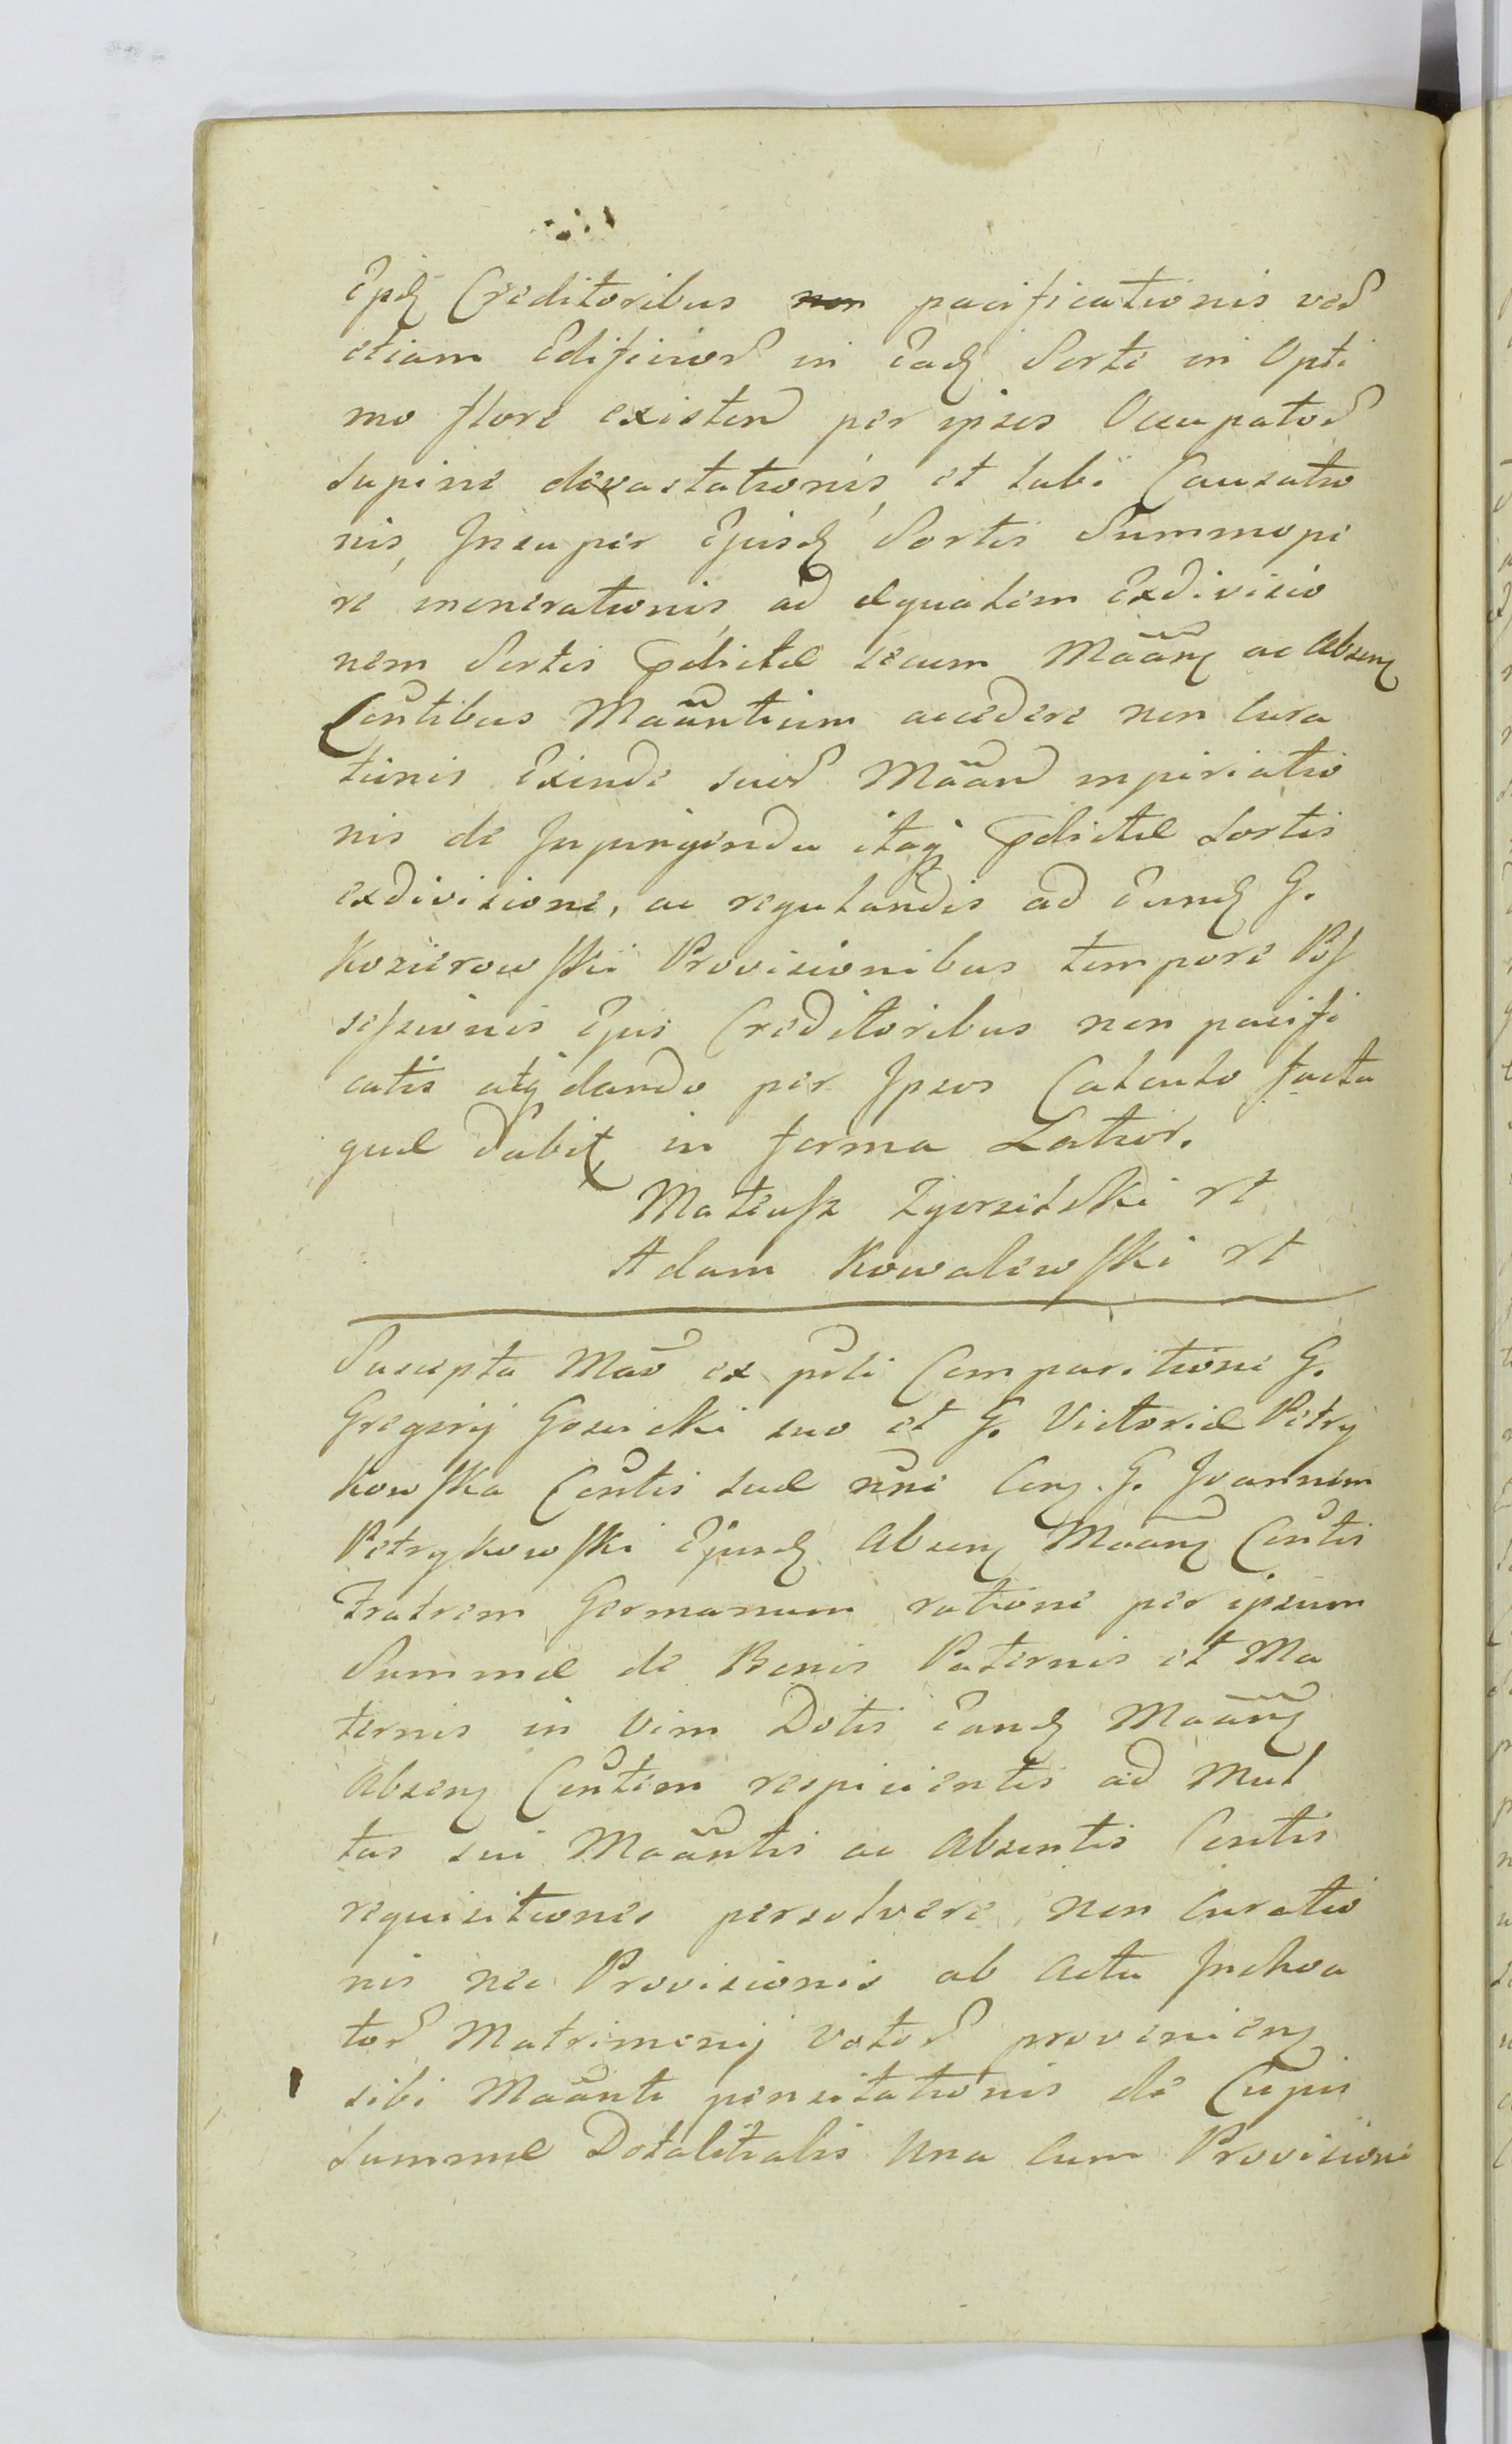 Ejusd Creditoribus non pacificationis ved
etiam Edificior in Ead Sorte in Opti
mo flore existen per ipsos Occupator
Supine devastationis, et labi Causatio
nis, Insuper Ejusd Sortis Summope
re onenerationis, ad æqualem Exdivisio
nem Sortis Pdictæ secum Mãan ac Absen
Contibus Mãantium accedere non Cura
tionis Exinde suor Mãan mpiriatio
nis de Injungenda itaq Pdictæ Sortis
exdivisione, ac regulandis ad Eund G.
Kozierowski Provisionibus tempore Pos
sessionis Ejus Creditoribus non pacifi
catis atq dando per Ipsos Calculo facta
quæ dabit in forma Latior.
Mateusz Zgorzelski rt
Adam Kowalewski rt
Suscepta Mão ex psti Comparitione G.
Gregorij Gosiicki suo et G. Victoriæ Petry
kowska Contis suæ nne Con. G. Joannem
Petrykowski Ejusd Absen Mãan Contis
Fratrem Germanum ratione per ipsum
Summæ de Bonis Paternis et Ma
ternis in Vim Dotis Eand Mãan
Absen Contem respicientis ad Mul
tas sui Mãantis ac Absentis Contis
requisitiones persolvere, non Curatio
nis nec Provisionis ab Actu Inchoa
tor Matrimonij Votor provenien
sibi Mãanti pensitationis de Cujus
Summæ Dotalitialis Una cum Provisione